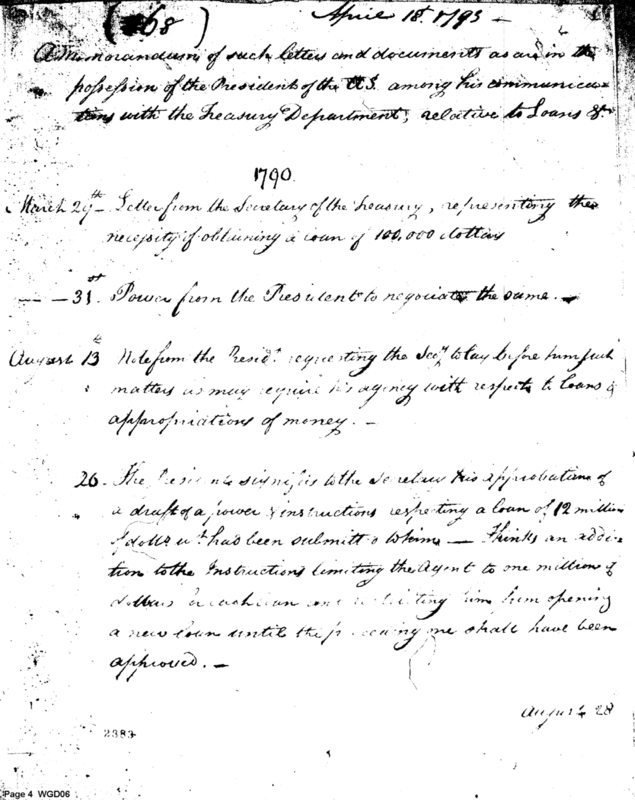 (68)
April 18th 1793 —
A Memorandum of such letters and documents as are in the
possession of the President of the U.S. among his communica-
tions with the Treasury Department, relative to Loans &c.
1790.
March 29th — Letter from the Secretary of the Treasury, representing the
necessity of obtaining a loan of 100,000 dollars
— — 31st. Power from the President to negociate the same. —
August 13th Note from the Presidt. requesting the Secy. to lay before him such
matters as may require his agency with respect to loans &
appropriations of money. —
26. The President signifies to the Secretary his approbation of
a draft of a power & instructions respecting a loan of 12 million
of dolls. wh. has been submitted to him — Thinks an addi-
tion to the Instructions limiting the Agent to one million of
dollars for each loan and restricting him from opening
a new loan until the preceding one shall have been
approved. —
August 28
2383
Page 4 WGD06